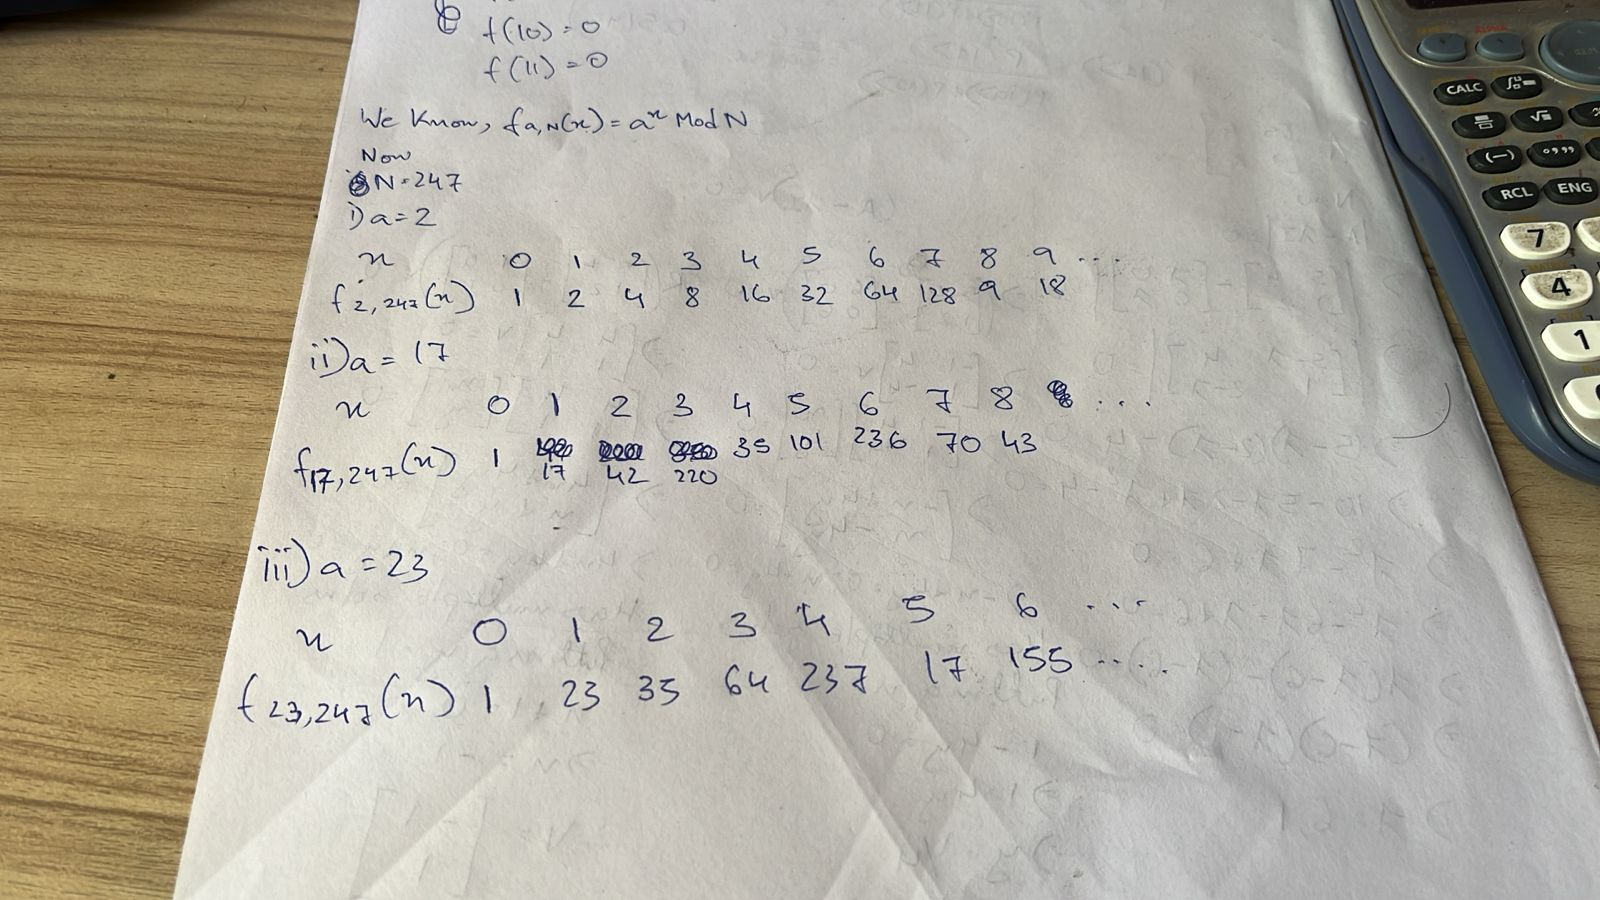 f(10)=0
f(11)=0
We know, fa,N(x) = aˣ Mod N
Now
N=247
i) a=2
x 0 1 2 3 4 5 6 7 8 9 ...
f2,247(x) 1 2 4 8 16 32 64 128 9 18
ii) a = 17
x 0 1 2 3 4 5 6 7 8 ...
f17,247(x) 1 17 42 220 35 101 236 70 43
iii) a = 23
x 0 1 2 3 4 5 6 ...
f23,247(x) 1 23 35 64 237 17 155 ...
CALC
(—)
RCL ENG
7
4
1